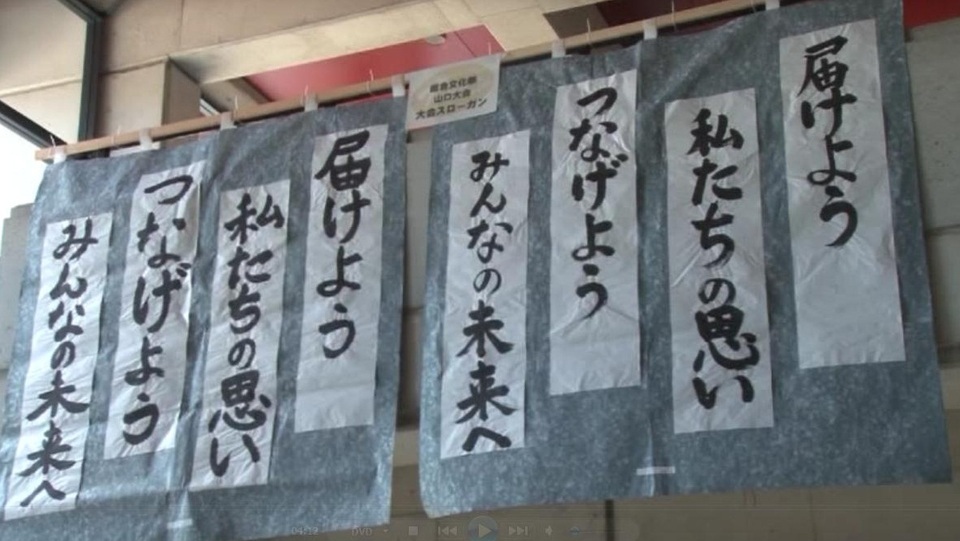 届けよう
私たちの思い
つなげよう
みんなの未来へ
総合文化祭
山口大会
大会スローガン
届けよう
私たちの思い
つなげよう
みんなの未来へ
04:19
DVD